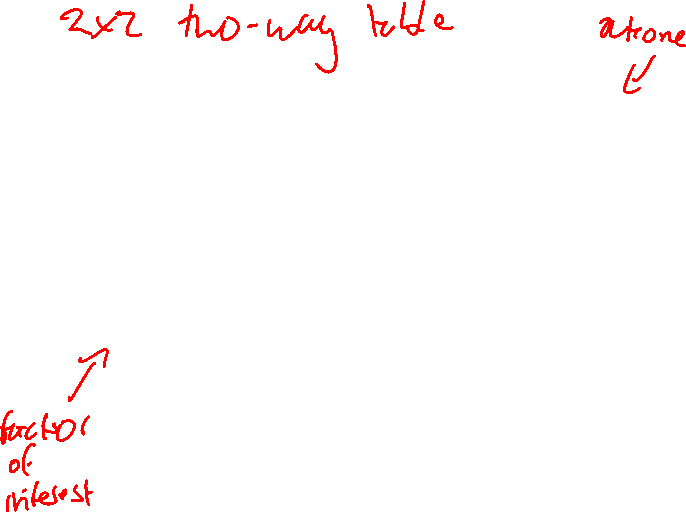 2x2 two-way table
outcome
factor
of
interest